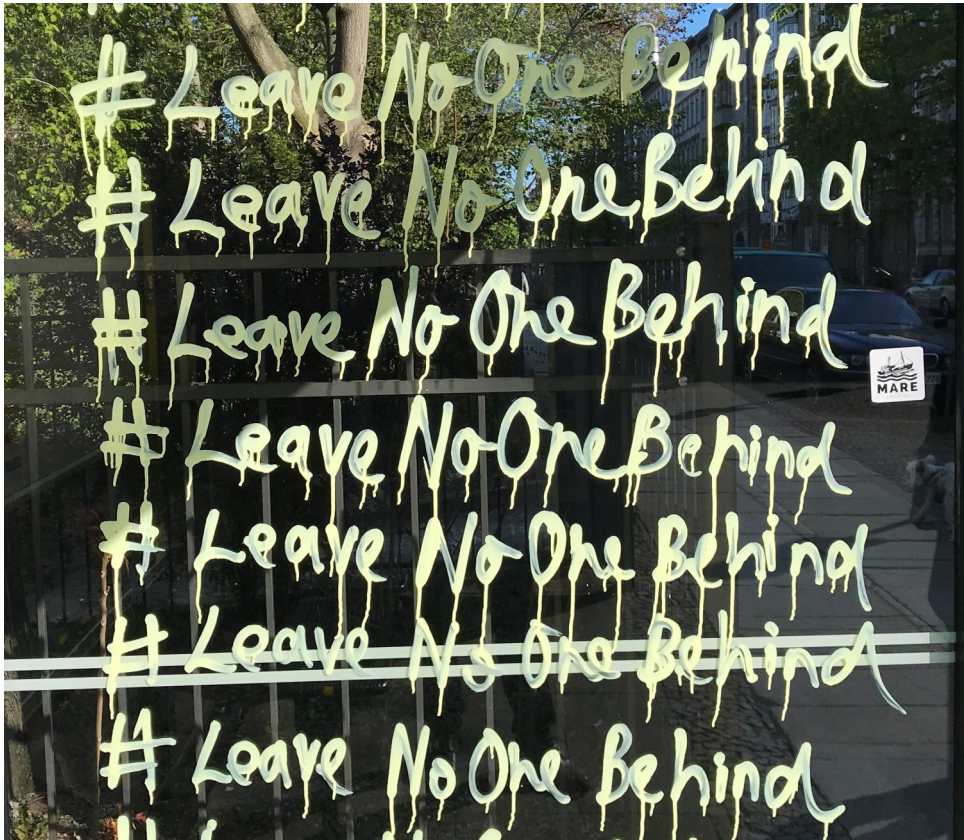 # Leave No One Behind
# Leave No One Behind
# Leave No One Behind
MARE
# Leave No One Behind
# Leave No One Behind
# Leave No One Behind
# Leave No One Behind